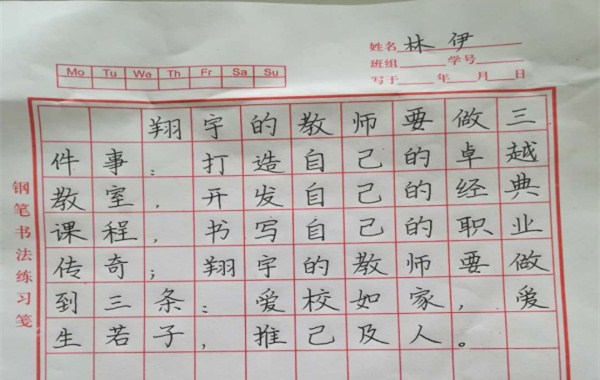 姓名 林伊
班组 学号
写于 年 月 日
Mo Tu We Th Fr Sa Su
钢笔书法练习笺
翔宇的教师要做三
件事：打造自己的卓越
教室，开发自己的经典
课程，书写自己的职业
传奇；翔宇的教师要做
到三条：爱校如家，爱
生若子，推己及人。